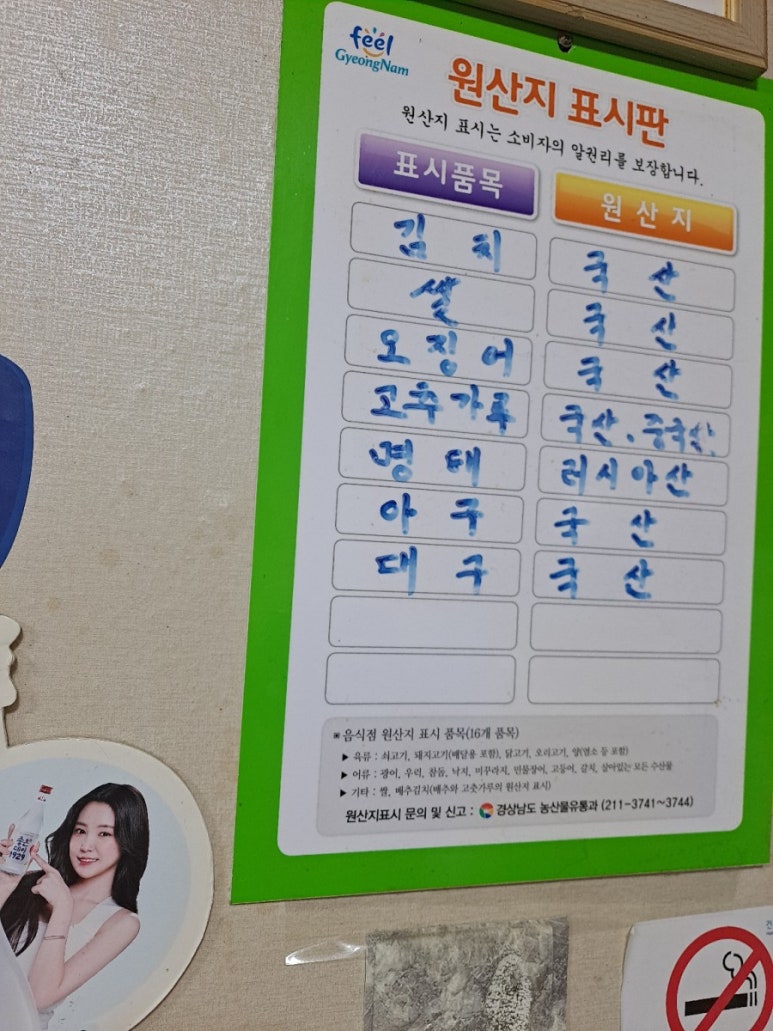 feel
GyeongNam
원산지 표시판
원산지 표시는 소비자의 알권리를 보장합니다.
표시품목 원산지
김치 국산
쌀 국산
오징어 국산
고추가루 국산, 중국산
명태 러시아산
아구 국산
대구 국산
※음식점 원산지 표시 품목(16개 품목)
▶ 육류 : 쇠고기, 돼지고기(배달용 포함), 닭고기, 오리고기, 양(염소 등 포함)
▶ 어류 : 광어, 우럭, 참돔, 낙지, 미꾸라지, 민물장어, 고등어, 갈치, 살아있는 모든 수산물
▶ 기타 : 쌀, 배추김치(배추와 고춧가루의 원산지 표시)
원산지표시 문의 및 신고 : 경상남도 농산물유통과 (211-3741~3744)
좋은
데이
1929